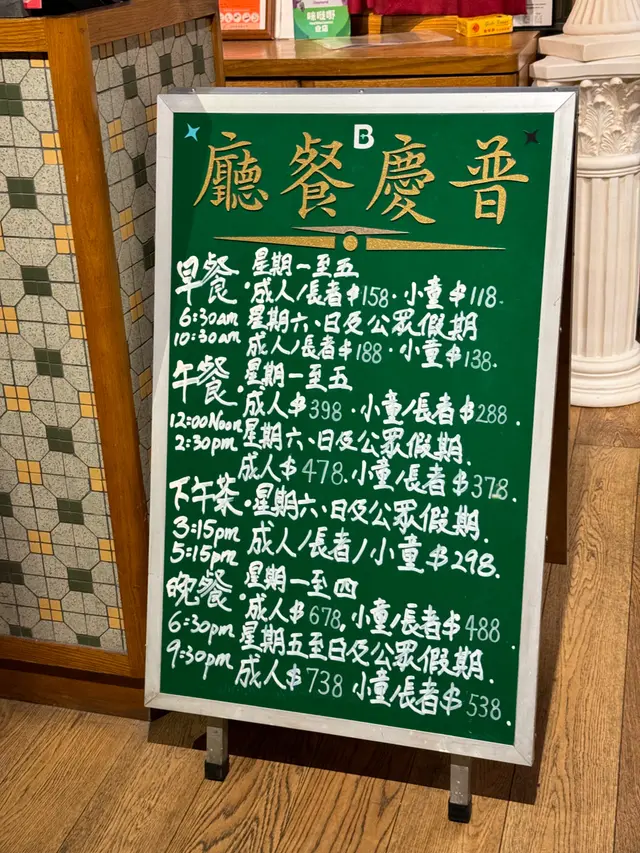 B
廳餐慶普
早餐
6:30am
10:30am
星期一至五
·成人/長者$158·小童$118·
星期六、日及公眾假期
成人/長者$188·小童$138·
午餐
12:00Noon
2:30pm
·星期一至五
成人$398·小童/長者$288.
星期六、日及公眾假期.
成人$478.小童/長者$378.
下午茶
3:15pm
5:15pm
·星期六、日及公眾假期.
成人/長者/小童$298.
晚餐
6:30pm
9:30pm
·星期一至四
成人$678,小童/長者$488
星期五至日及公眾假期.
成人$738 小童/長者$538.